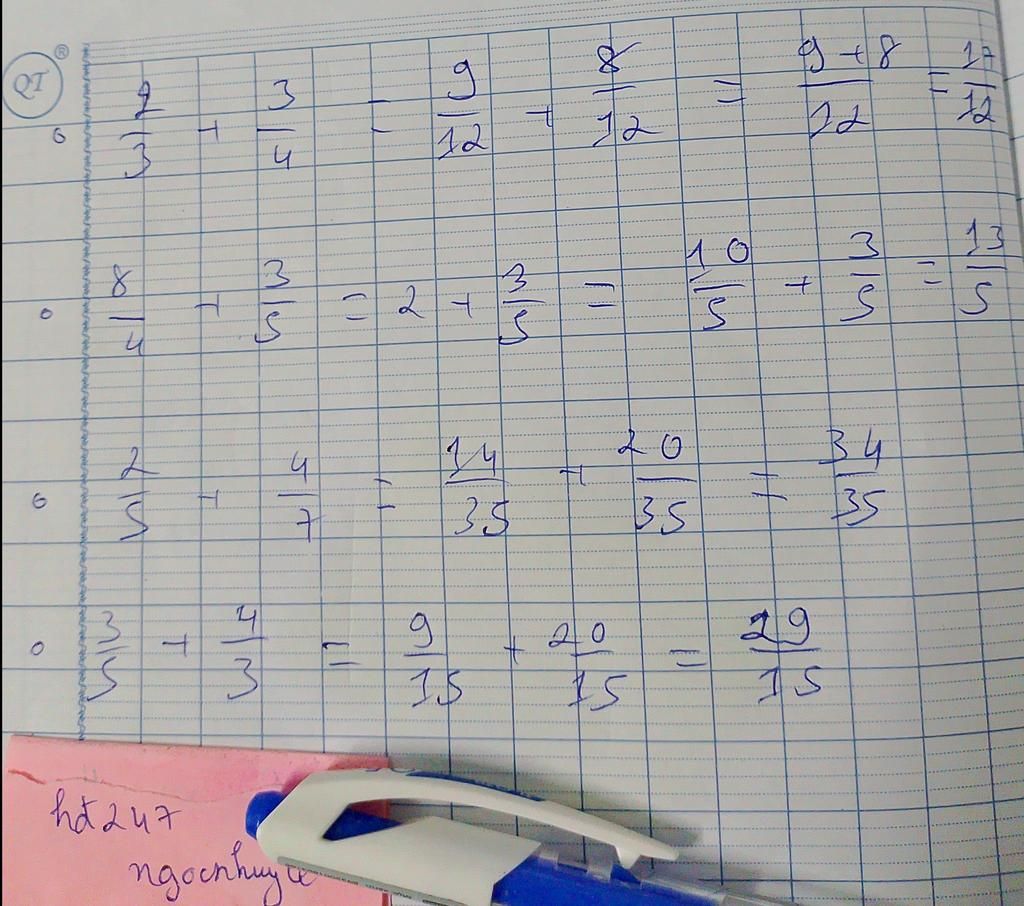 QT ®
2/3 + 3/4 = 9/12 + 8/12 = 9+8/12 = 17/12
8/4 + 3/5 = 2 + 3/5 = 10/5 + 3/5 = 13/5
2/5 + 4/7 = 14/35 + 20/35 = 34/35
3/5 + 4/3 = 9/15 + 20/15 = 29/15
hd247